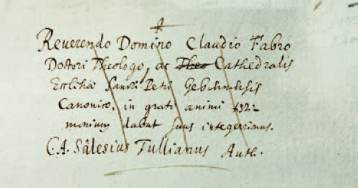 Reverendo Domino Claudio Fabro
Doctori Theologo, ac Theo Cathedralis
Ecclesiæ Sancti Petri Gebennensis
Canonico, in grati animi
monium dabat suus integerrimus.
C. A. Salesius Tullianus Auth.